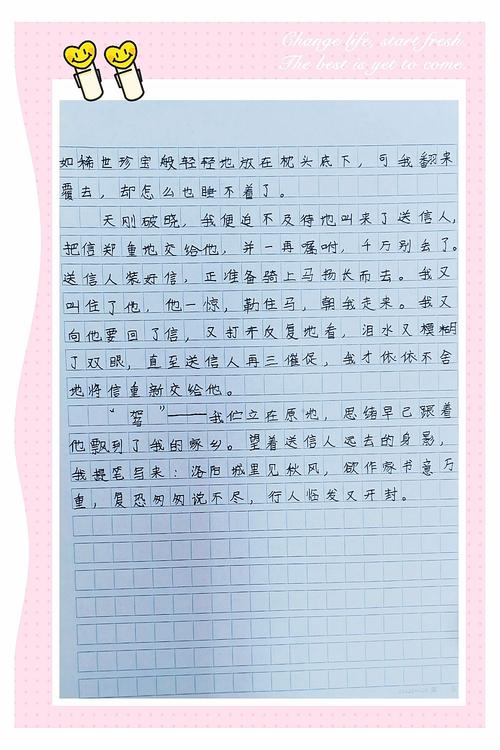 Change life, start fresh.
The best is yet to come.
如稀世珍宝般轻轻地放在枕头底下，可我翻来
覆去，却怎么也睡不着了。
天刚破晓，我便迫不及待地叫来了送信人，
把信郑重地交给他，并一再嘱咐，千万别丢了。
送信人装好信，正准备骑上马扬长而去。我又
叫住了他，他一惊，勒住马，朝我走来。我又
向他要回了信，又打开反复地看，泪水又模糊
了双眼，直至送信人再三催促，我才依依不舍
地将信重新交给他。
“驾”——我伫立在原地，思绪早已跟着
他飘到了我的家乡。望着送信人远去的身影，
我提笔写来：洛阳城里见秋风，欲作家书意万
重，复恐匆匆说不尽，行人临发又开封。